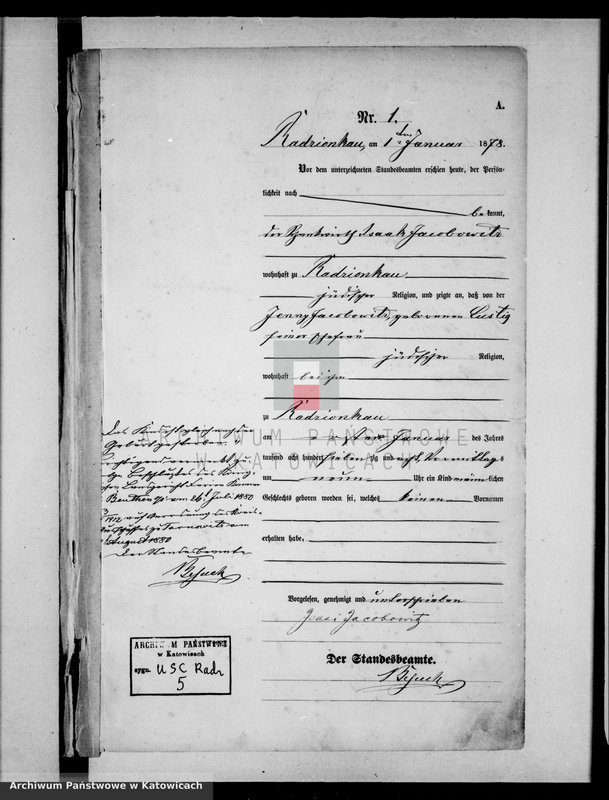 A.
Nr. 1.
Radzionkau, am 1ten Januar 1878.
Vor dem unterzeichneten Standesbeamten erschien heute, der Persön-
lichkeit nach
bekannt,
der Schenkwirth Isaak Jacobowitz
wohnhaft zu Radzionkau
jüdischer Religion, und zeigte an, daß von der
Jenny Jacobowitz, geborenen Lustig
seiner Ehefrau
jüdischer Religion,
wohnhaft bei ihm
zu Radzionkau
am ersten Januar des Jahres
tausend acht hundert siebenzig und acht, Vormittags
um neun Uhr ein Kind männlichen
Geschlechts geboren worden sei, welches keinen Vornamen
erhalten habe.
Vorgelesen, genehmigt und unterschrieben
Jacobowitz
Der Standesbeamte.
Das Kind ist gleich nach der
Geburt gestorben.
Beuthen vom 26t Juli 1880
Tarnowitz vom
August 1880
Der Standesbeamte
ARCHIWUM PAŃSTWOWE
w Katowicach
sygn. USC Radz
5
ARCHIWUM PAŃSTWOWE
W KATOWICACH
Archiwum Państwowe w Katowicach
Archiwum Państwowe w Katowicach